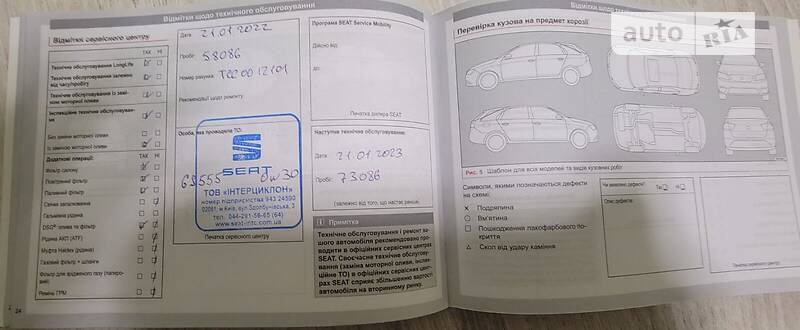 Відмітки щодо технічного обслуговування
Відмітки сервісного центру
ТАК НІ
Технічне обслуговування LongLife
Технічне обслуговування залежно
від часу/пробігу
Технічне обслуговування із замі-
ною моторної оливи
Інспекційне технічне обслуговуван-
ня
Без заміни моторної оливи
Із заміною моторної оливи
Додаткові операції: ТАК НІ
Фільтр салону
Повітряний фільтр
Паливний фільтр
Свічки запалювання
Гальмівна рідина
DSG® олива та фільтр
Рідина АКП (ATF)
Муфта Haldex (рідина)
Газовий фільтр + шланги
Фільтр для зрідженого газу (паперо-
вий)
Ремінь ГРМ
24
Дата 21.01.2022
Пробіг 58086
Номер рахунка
Рекомендації щодо ремонту:
Особа, яка проводила ТО:
SEAT
0w30
ТОВ «ІНТЕРЦИКЛОН»
номер підприємства 943 24590
тел. 044-291-56-65 (64)
www.seat-intc.com.ua
Печатка сервісного центру
Програма SEAT Service Mobility
Дійсно від:
до:
Печатка дилера SEAT
Наступне технічне обслуговування:
Дата 21.01.2023
Пробіг: 73086
(залежно від того, що настане раніше)
Примітка
Технічне обслуговування і ремонт ва-
шого автомобіля рекомендовано про-
водити в офіційних сервісних центрах
SEAT. Своєчасне технічне обслугову-
вання (заміна моторної оливи, інспек-
ційне ТО) в офіційних сервісних цент-
рах SEAT сприяє збільшенню вартості
автомобіля на вторинному ринку.
Відмітки щодо технічного обслуговування
Перевірка кузова на предмет корозії
auto RIA
Рис. 5 Шаблон для всіх моделей та видів кузовних робіт
Символи, якими позначаються дефекти
на схемі:
× Подряпина
○ Вм'ятина
□ Пошкодження лакофарбового по-
криття
△ Скол від удару каміння
Чи виявлено дефекти? Так Ні
Опис дефекту:
Дата
Печатка сервісного центру